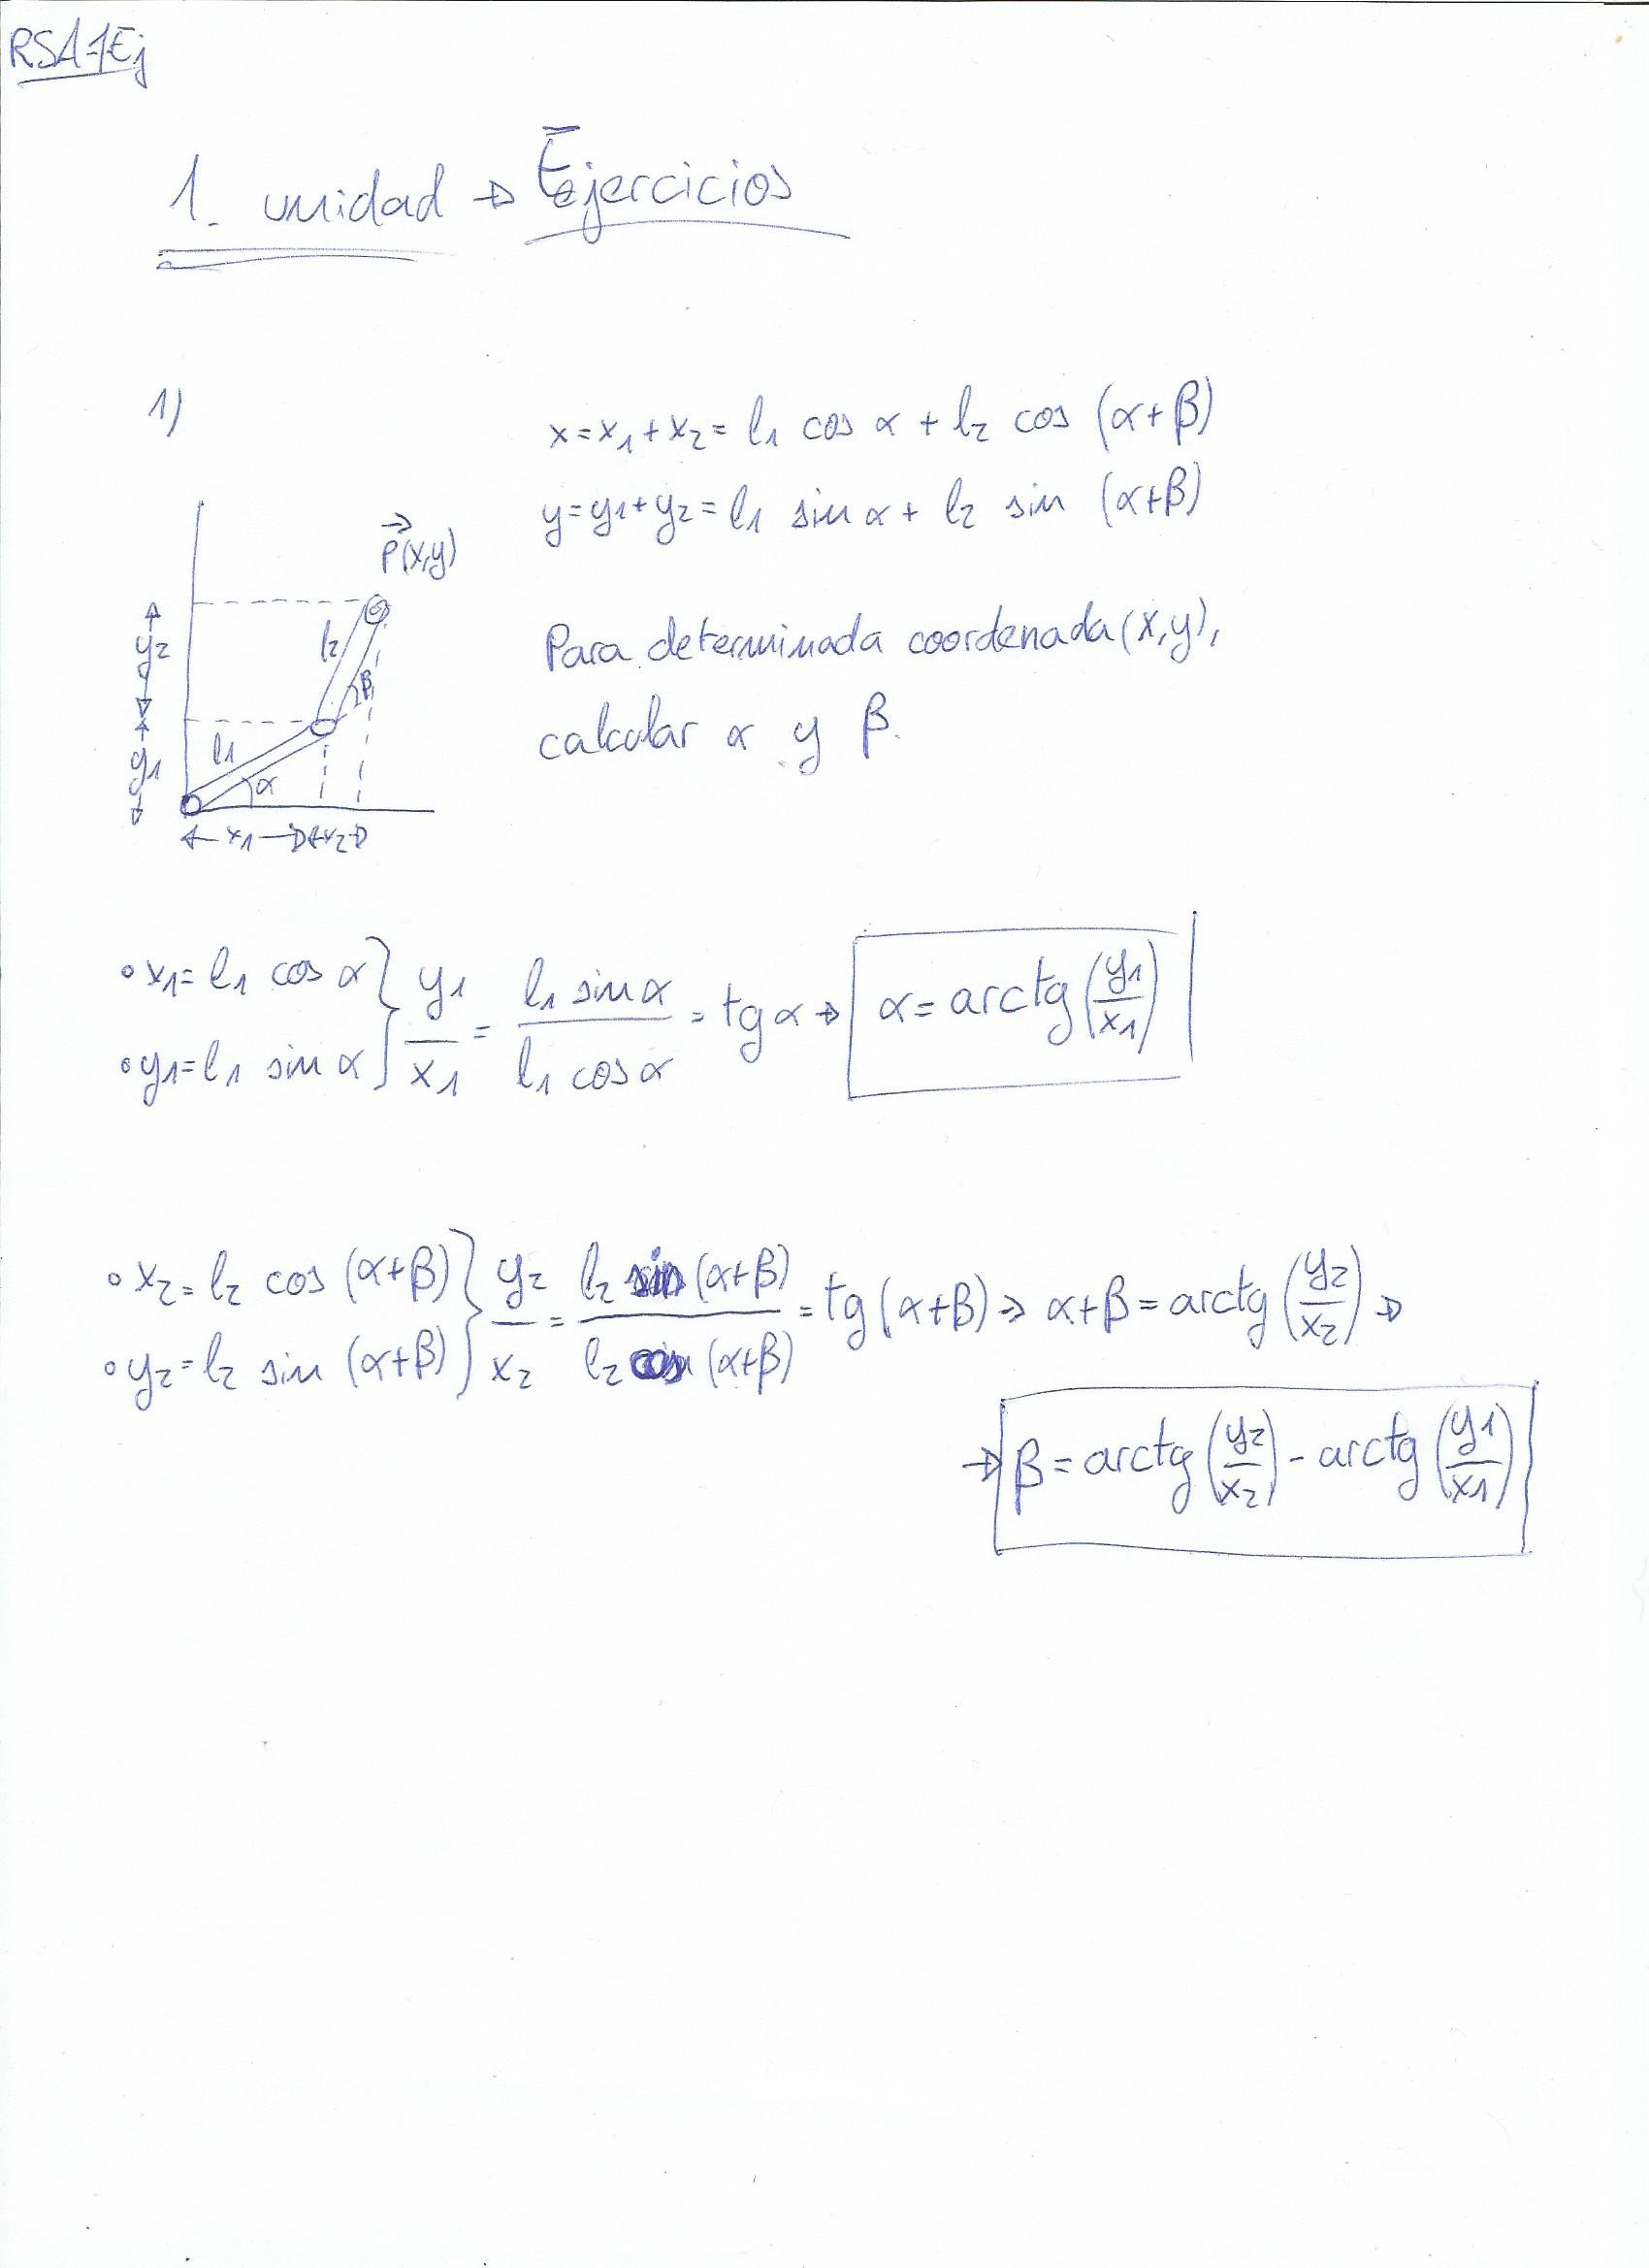 RSA-1Ej
1. unidad → Ejercicios
1)
x = x₁ + x₂ = l₁ cos α + l₂ cos (α+β)
y = y₁ + y₂ = l₁ sin α + l₂ sin (α+β)
P⃗(x,y)
Para determinada coordenada (x,y),
calcular α y β.
y₂
l₂
β
y₁
l₁
α
x₁ x₂
• x₁ = l₁ cos α
• y₁ = l₁ sin α } y₁/x₁ = l₁ sin α / l₁ cos α = tg α → α = arctg (y₁/x₁)
• x₂ = l₂ cos (α+β)
• y₂ = l₂ sin (α+β) } y₂/x₂ = l₂ sin (α+β) / l₂ cos (α+β) = tg (α+β) → α+β = arctg (y₂/x₂) →
→ β = arctg (y₂/x₂) - arctg (y₁/x₁)